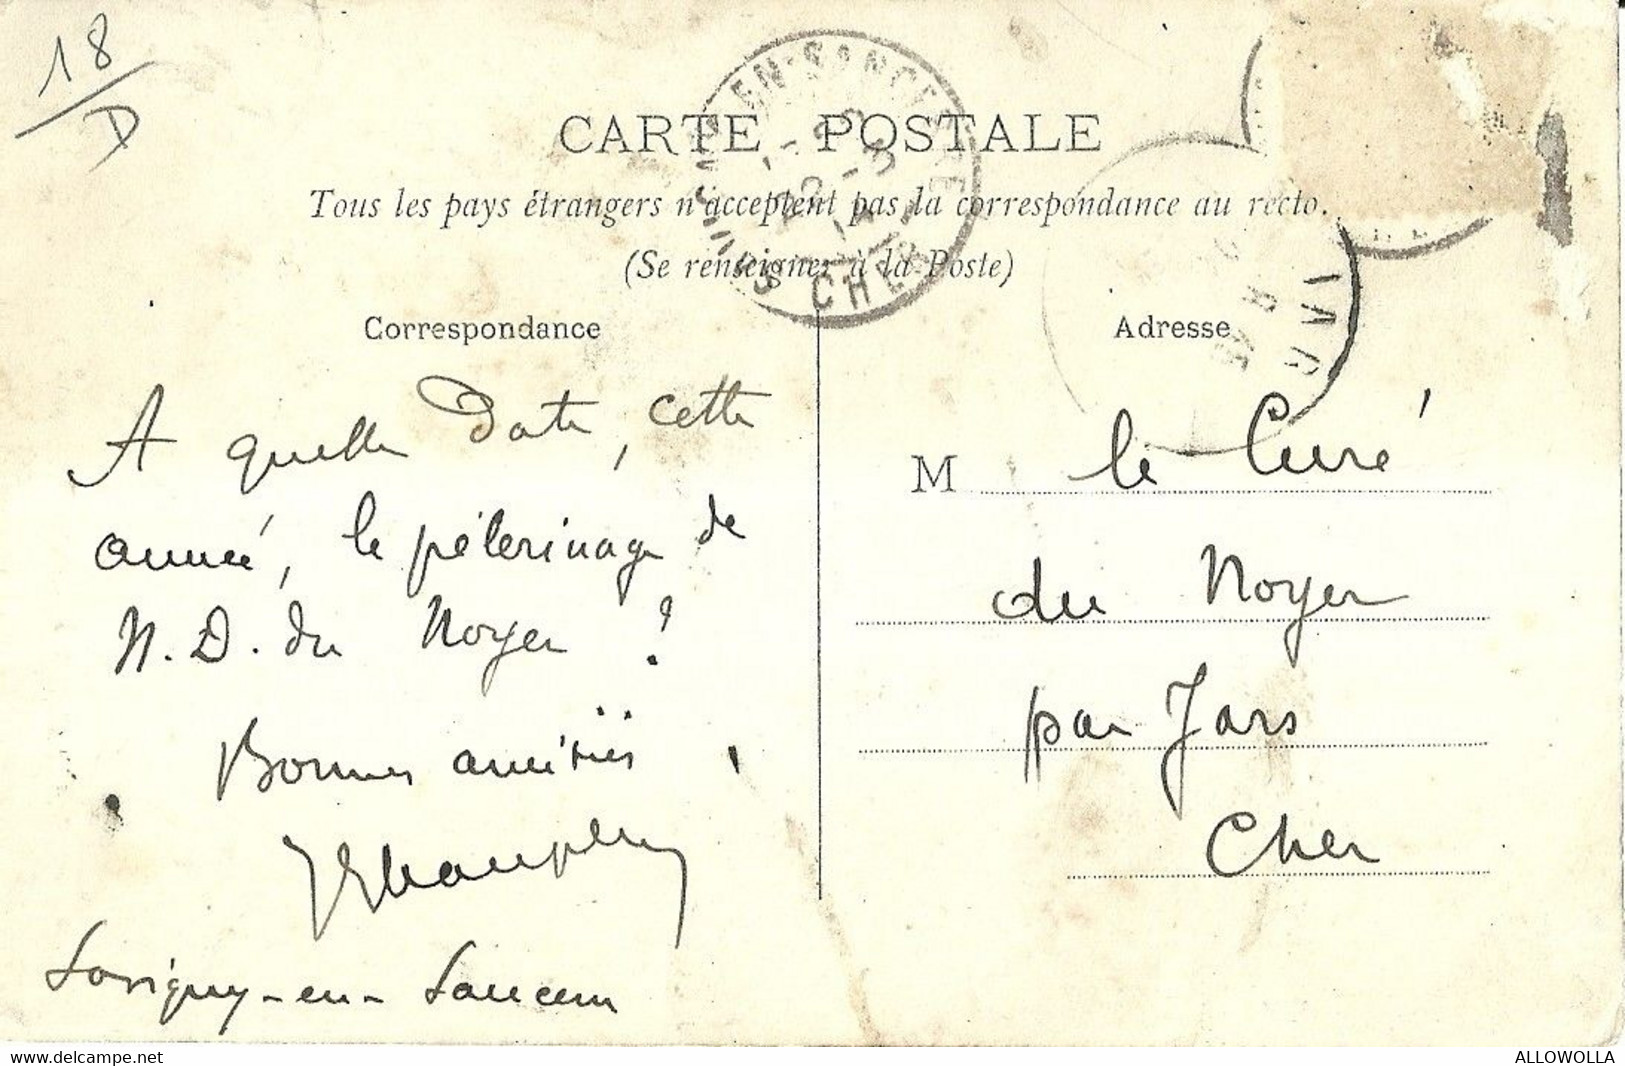 18
D
CARTE POSTALE
Tous les pays étrangers n'acceptent pas la correspondance au recto.
(Se renseigner à la Poste)
EN-SANCERRE
CHER
Correspondance
A quelle date, cette
année, le pèlerinage de
N. D. du Noyer ?
Bonnes amitiés
Savigny-en-Sancerre
Adresse
M le Curé
du Noyer
par Jars
Cher
www.delcampe.net
ALLOWOLLA